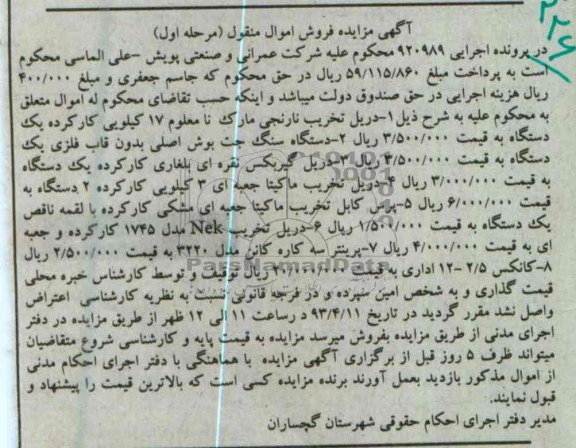 آگهی مزایده فروش اموال منقول (مرحله اول)
در پرونده اجرایی ۹۲۰۹۸۹ محکوم علیه شرکت عمرانی و صنعتی پویش -علی الماسی محکوم
است به پرداخت مبلغ ۵۹/۱۱۵/۸۶۰ ریال در حق محکوم که جاسم جعفری و مبلغ ۴۰۰/۰۰۰
ریال هزینه اجرایی در حق صندوق دولت میباشد و اینکه حسب تقاضای محکوم له اموال متعلق
به محکوم علیه به شرح ذیل ۱-دریل تخریب نارنجی مارک نا معلوم ۱۷ کیلویی کارکرده یک
دستگاه به قیمت ۳/۵۰۰/۰۰۰ ریال ۲-دستگاه سنگ جت بوش اصلی بدون قاب فلزی یک
دستگاه به قیمت ۳/۵۰۰/۰۰۰ ریال ۳-دریل گیربکس نقره ای بلغاری کارکرده یک دستگاه
به قیمت ۳/۰۰۰/۰۰۰ ریال ۴-دریل تخریب ماکیتا جعبه ای ۳ کیلویی کارکرده ۲ دستگاه به
قیمت ۶/۰۰۰/۰۰۰ ریال ۵- کابل تخریب ماکیتا جعبه ای مشکی کارکرده با لقمه ناقص
یک دستگاه به قیمت ۱/۵۰۰/۰۰۰ ریال ۶-دریل تخریب Nek مدل ۱۷۴۵ کارکرده و جعبه
ای به قیمت ۴/۰۰۰/۰۰۰ ریال ۷-پرینتر سه کاره کانن مدل ۳۲۲۰ به قیمت ۲/۵۰۰/۰۰۰ ریال
۸-کانکس ۲/۵ -۱۲ اداری به قیمت ریال توقیف و توسط کارشناس خبره محلی
قیمت گذاری و به شخص امین سپرده و در فرجه قانونی نسبت به نظریه کارشناسی اعتراض
واصل نشد مقرر گردید در تاریخ ۹۳/۴/۱۱ د رساعت ۱۱ الی ۱۲ ظهر از طریق مزایده در دفتر
اجرای مدنی از طریق مزایده بفروش میرسد مزایده به قیمت پایه و کارشناسی شروع متقاضیان
میتواند ظرف ۵ روز قبل از برگزاری آگهی مزایده با هماهنگی با دفتر اجرای احکام مدنی
از اموال مذکور بازدید بعمل آورند برنده مزایده کسی است که بالاترین قیمت را پیشنهاد و
قبول نمایند.
مدیر دفتر اجرای احکام حقوقی شهرستان گچساران
ParsNamadData
۲۲۶